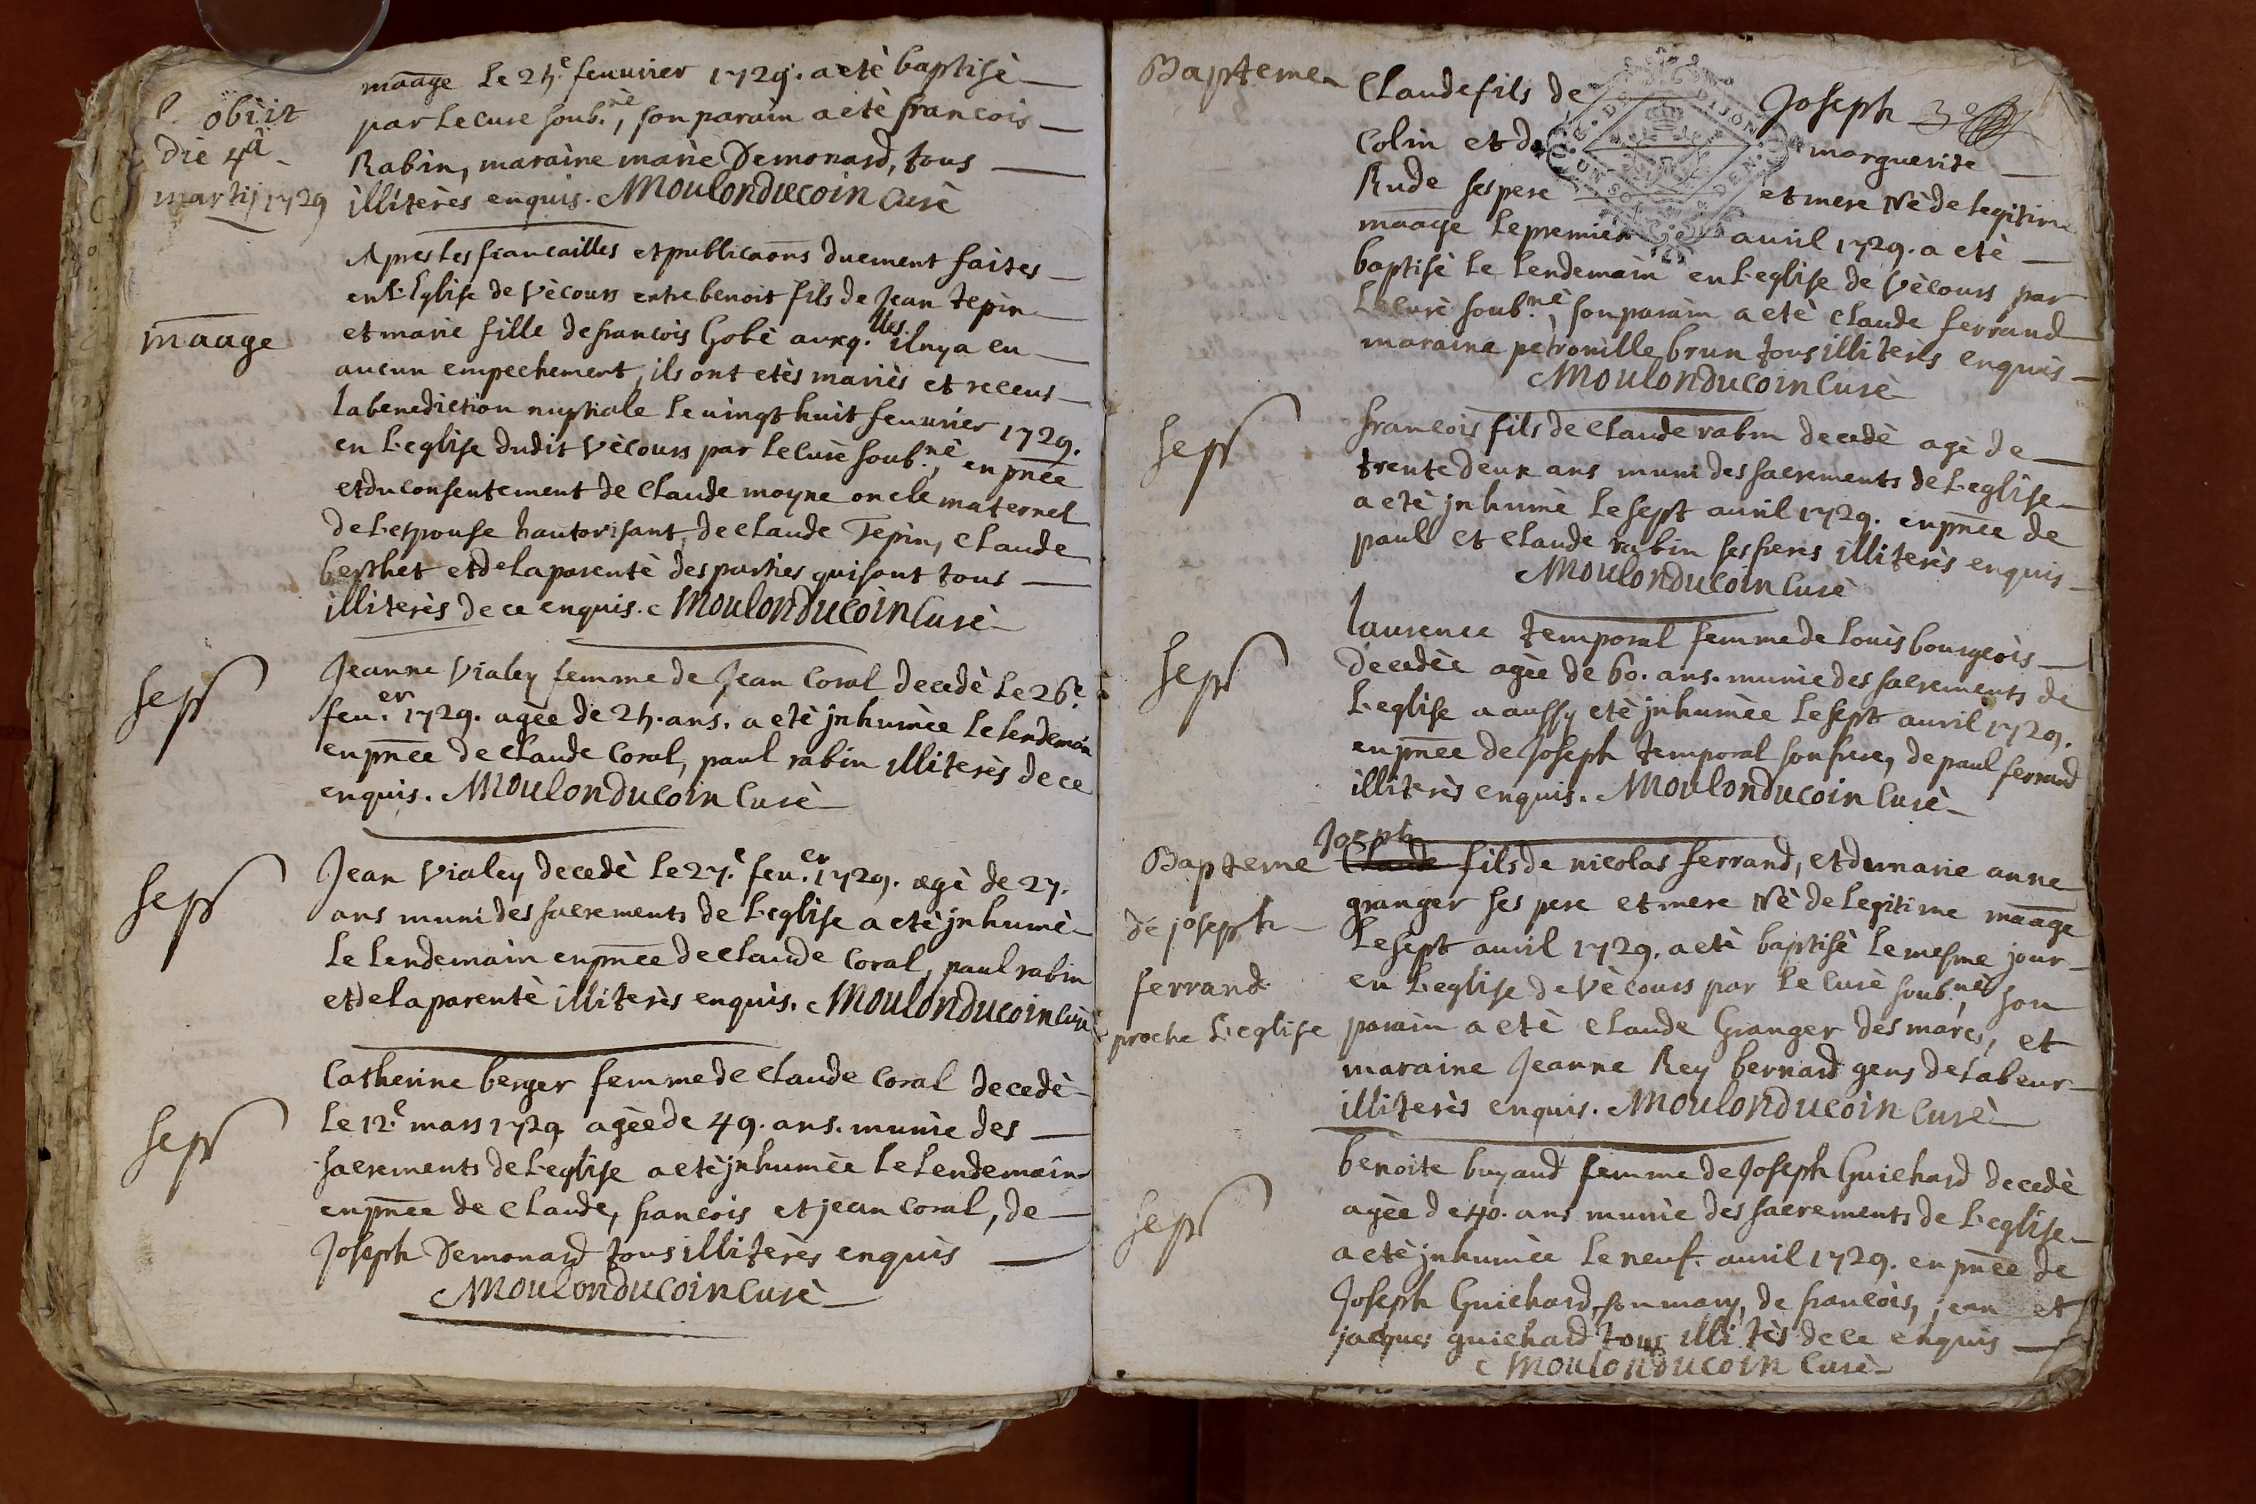 maage le 25e feuurier 1729. a eté baptisé
par le curé soub.né, son parain a eté francois
Rabin, maraine marie Demonard, tous
illiterés enquis. Moulonducoin Curé
obiit
die 4a
martij 1729
Apres les fiancailles et publicaons duement faites
en l'Eglise de Vécours entre benoit fils de Jean tepin
et marie fille de francois Gobé auxq.lles il ny a eu
aucun empechement, ils ont etés mariés et receus
la benediction nuptiale le vingt huit feuurier 1729.
en l'eglise dudit Vécours par le curé soub.né, en pnce
et du consentement de Claude moyne oncle maternel
de l'espouse hautorisant, de Claude Tepin, Claude
berthet et de la parenté des parties qui sont tous
illiterés de ce enquis. Moulonducoin Curé
maage
Jeanne Vialey femme de Jean Coral decedé le 26e
feu.er 1729. agée de 25. ans. a eté jnhumée le lendemain
en pnce de Claude Coral, paul rabin illiterés de ce
enquis. Moulonducoin Curé
sep
Jean Vialey decedé le 27.e feu.er 1729. agé de 27.
ans muni des sacrements de l'eglise a eté jnhumé
le lendemain en pnce de Claude Coral, paul rabin
et de la parenté illiterés enquis. Moulonducoin Curé
sep
Catherine berger femme de Claude Coral decedé
le 12.e mars 1729 agée de 49. ans. munie des
sacrements de l'eglise a eté jnhumée le lendemain
en pnce de Claude, francois et jean coral, de
Joseph Demonard tous illiterés enquis
Moulonducoin Curé
sep
Bapteme
Claude fils de Joseph
Colin et de marguerite
Rude ses pere et mere Né de legitime
maage le premier auril 1729. a eté
baptisé le lendemain en l'eglise de Vécours par
le curé soub.né, son parain a eté Claude ferrand
maraine petronille brun tous illiterés enquis
Moulonducoin Curé
sep
francois fils de Claude rabin decedé agé de
trente deux ans muni des sacrements de l'eglise
a eté jnhumé le sept auril 1729. en pnce de
paul et Claude rabin ses freres illiterés enquis
Moulonducoin Curé
sep
laurence temporal femme de louis bourgeois
decedée agée de 60. ans. munie des sacrements de
l'eglise a aussy eté jnhumée le sept auril 1729.
en pnce de Joseph temporal son frere, de paul ferrand
illiterés enquis. Moulonducoin Curé
Bapteme
de joseph
ferrand
proche l'eglise
Joseph
Claude fils de nicolas ferrand, et du marie anne
granger ses pere et mere Né de legitime maage
le sept auril 1729. a eté baptisé le mesme jour
en l'eglise de Vécours par le curé soub.né, son
parain a eté Claude Granger des marcs, et
maraine Jeanne Rey bernard gens de labeur
illiterés enquis. Moulonducoin Curé
sep
benoite buyaud femme de Joseph Guichard decedé
agée de 40. ans munie des sacrements de l'eglise
a eté jnhumée le neuf. auril 1729. en pnce de
Joseph Guichard, son mary, de francois, jean et
jacques guichard tous illi tés de ce enquis
Moulonducoin Curé